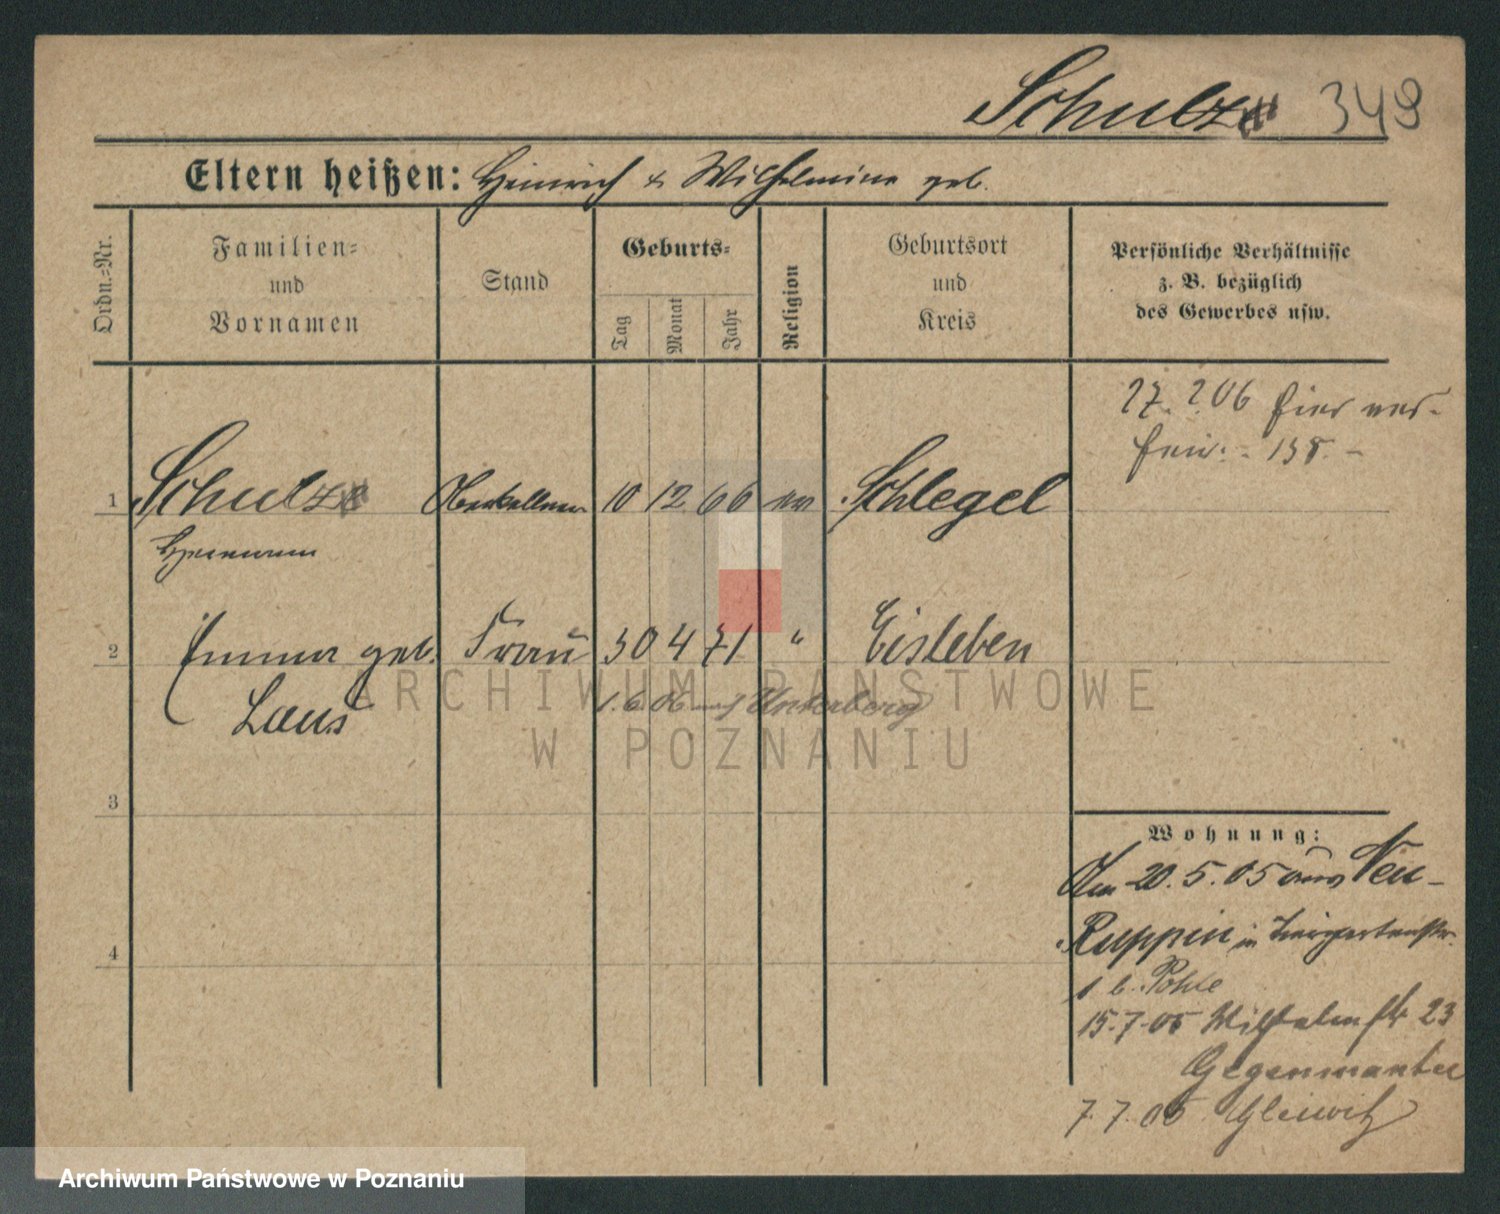 Schulz 349
Eltern heißen: Heinrich & Wilhelmine geb.
Ordn.=Nr.
Familien=
und
Vornamen
Stand
Geburts=
Tag
Monat
Jahr
Religion
Geburtsort
und
Kreis
Persönliche Verhältnisse
z. B. bezüglich
des Gewerbes usw.
27. 2 06 hier ver-
1 Schulz Oberkellner 10 12 66 ev Schlegel
Hermann
2 Emma geb. Frau 30 4 71 " Eisleben
Laus
1. 6. 06 auf Unterberg
3
4
Wohnung:
Am 20. 5. 05 aus Neu-
Ruppin in Tiergartenstr.
1 b. Pohle
15. 7. 05 Wilhelmstr 23
7. 7. 06 Gleiwitz
ARCHIWUM PAŃSTWOWE
W POZNANIU
Archiwum Państwowe w Poznaniu